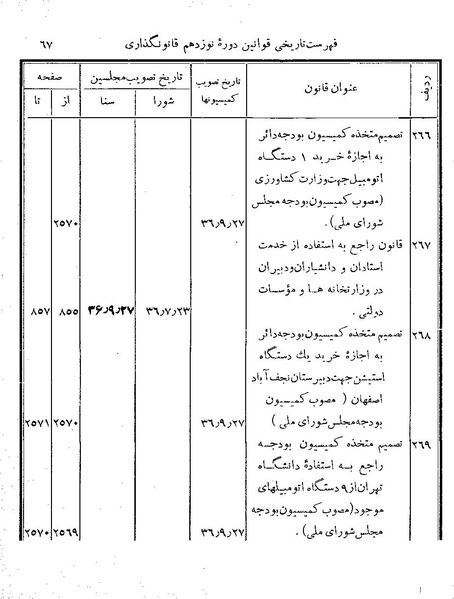 فهرست تاریخی قوانین دورهٔ نوزدهم قانونگذاری ۶۷
ردیف عنوان قانون تاریخ تصویب کمیسیونها تاریخ تصویب مجلسین صفحه
شورا سنا از تا
۲۶۶ تصمیم متخذه کمیسیون بودجه دائر
به اجازهٔ خرید ۱ دستگاه
اتومبیل جهت وزارت کشاورزی
(مصوب کمیسیون بودجه مجلس
شورای ملی). ۳۶٫۹٫۲۷ ۲۵۷۰
۲۶۷ قانون راجع به استفاده از خدمت
استادان و دانشیاران و دبیران
در وزارتخانه ها و مؤسسات
دولتی. ۳۶٫۷٫۲۳ ۳۶٫۹٫۲۷ ۸۵۵ ۸۵۷
۲۶۸ تصمیم متخذه کمیسیون بودجه دائر
به اجازهٔ خرید یك دستگاه
استیشن جهت دبیرستان نجف آباد
اصفهان ( مصوب کمیسیون
بودجه مجلس شورای ملی) ۳۶٫۹٫۲۷ ۲۵۷۰ ۲۵۷۱
۲۶۹ تصمیم متخذه کمیسیون بودجه
راجع به استفادهٔ دانشگاه
تهران از ۹ دستگاه اتومبیلهای
موجود (مصوب کمیسیون بودجه
مجلس شورای ملی). ۳۶٫۹٫۲۷ ۲۵۶۹ ۲۵۷۰